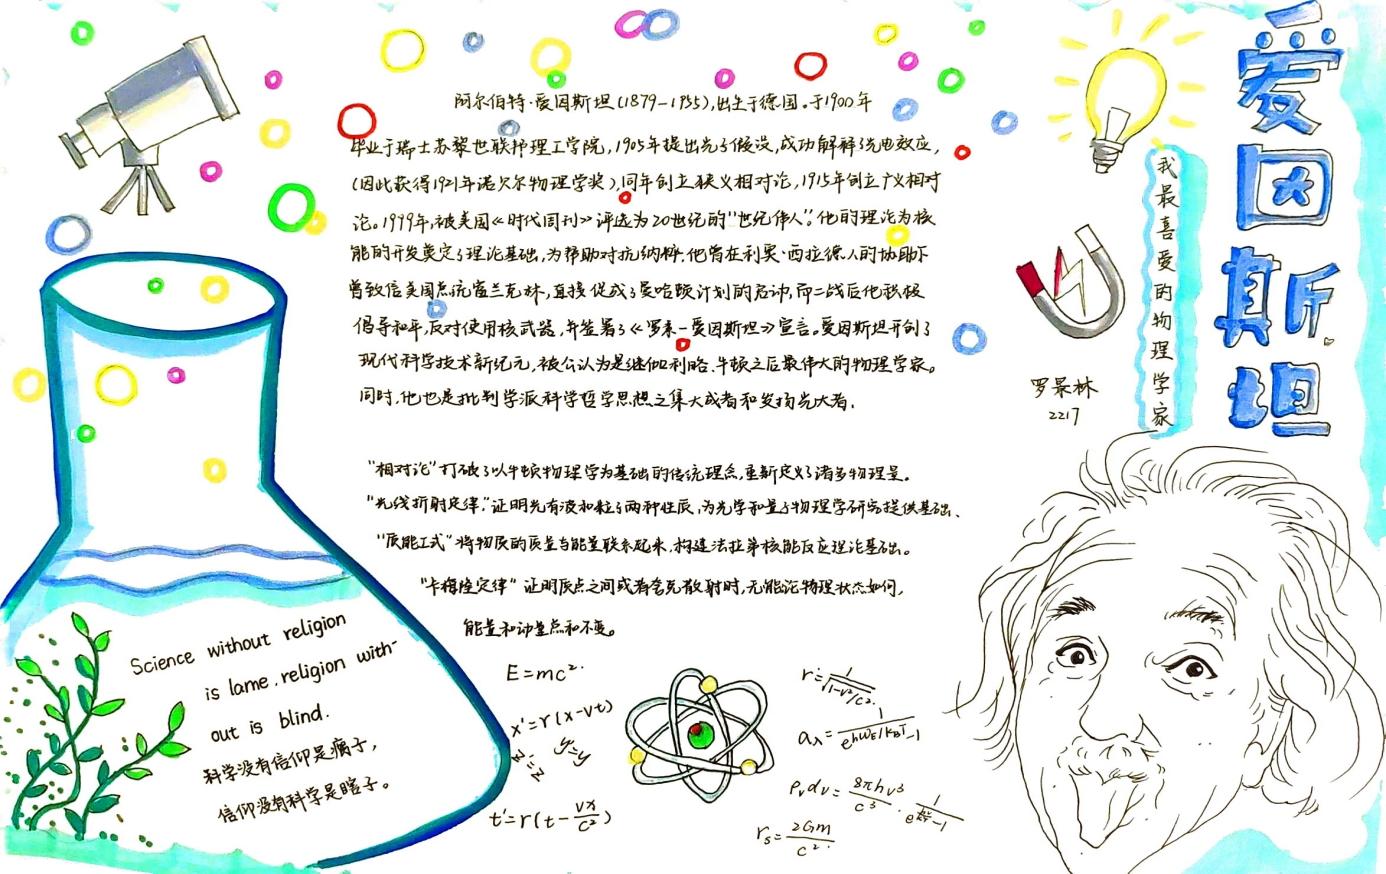 爱因斯坦
我最喜爱的物理学家
罗景林
2217
阿尔伯特·爱因斯坦(1879-1955),出生于德国。于1900年
毕业于瑞士苏黎世联邦理工学院,1905年提出光子假设,成功解释了光电效应,
(因此获得1921年诺贝尔物理学奖),同年创立狭义相对论,1915年创立广义相对
论。1999年,被美国《时代周刊》评选为20世纪的"世纪伟人",他的理论为核
能的开发奠定了理论基础,为帮助对抗纳粹,他曾在利奥·西拉德人的协助下
曾致信美国总统富兰克林,直接促成了曼哈顿计划的启动,而二战后他积极
倡导和平,反对使用核武器,并签署了《罗素-爱因斯坦》宣言。爱因斯坦开创了
现代科学技术新纪元,被公认为是继伽利略、牛顿之后最伟大的物理学家。
同时,他也是批判学派科学哲学思想之集大成者和发扬光大者.
"相对论"打破了以牛顿物理学为基础的传统理念,重新定义了诸多物理量。
"光线折射定律",证明光有波和粒子两种性质,为光学和量子物理学研究提供基础、
"质能工式"将物质的质量与能量联系起来,构建法拉第核能反应理论基础。
"卡梅隆定律"证明质点之间或者含克散射时,无能论物理状态如何,
能量和动量总和不变。
Science without religion
is lame, religion with-
out is blind.
科学没有信仰是瘸子,
信仰没有科学是瞎子。
E=mc².
x'=r(x-vt)
y'=y
z'=z
t'=r(t-vx/c²)
r=1/√1-v²/c²
aλ=1/e^ħωε/kBT-1
ρᵥdᵥ=8πhv³/c³ ·
rs=2Gm/c²